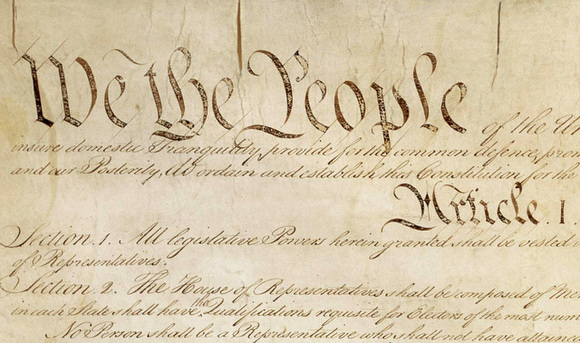 We the People of the Un
insure domestic Tranquility, provide for the common defence, prom
and our Posterity, do ordain and establish this Constitution for the
Article. I.
Section. 1. All legislative Powers herein granted shall be vested
of Representatives.
Section. 2. The House of Representatives shall be composed of Me
in each State shall have the Qualifications requisite for Electors of the most num
No Person shall be a Representative who shall not have attaine